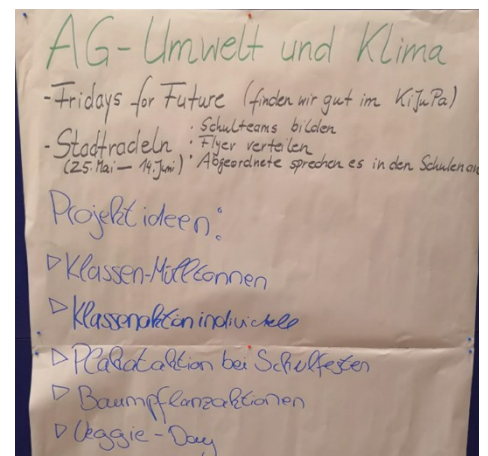 AG-Umwelt und Klima
-Fridays for Future (finden wir gut im KiJuPa)
· Schulteams bilden
- Stadtradeln · Flyer verteilen
(25. Mai – 14. Juni) · Abgeordnete sprechen es in den Schulen an
Projektideen:
▷ Klassen-Mülltonnen
▷ Klassenaktion individuell
▷ Plakataktion bei Schulfesten
▷ Baumpflanzaktionen
▷ Veggie-Day